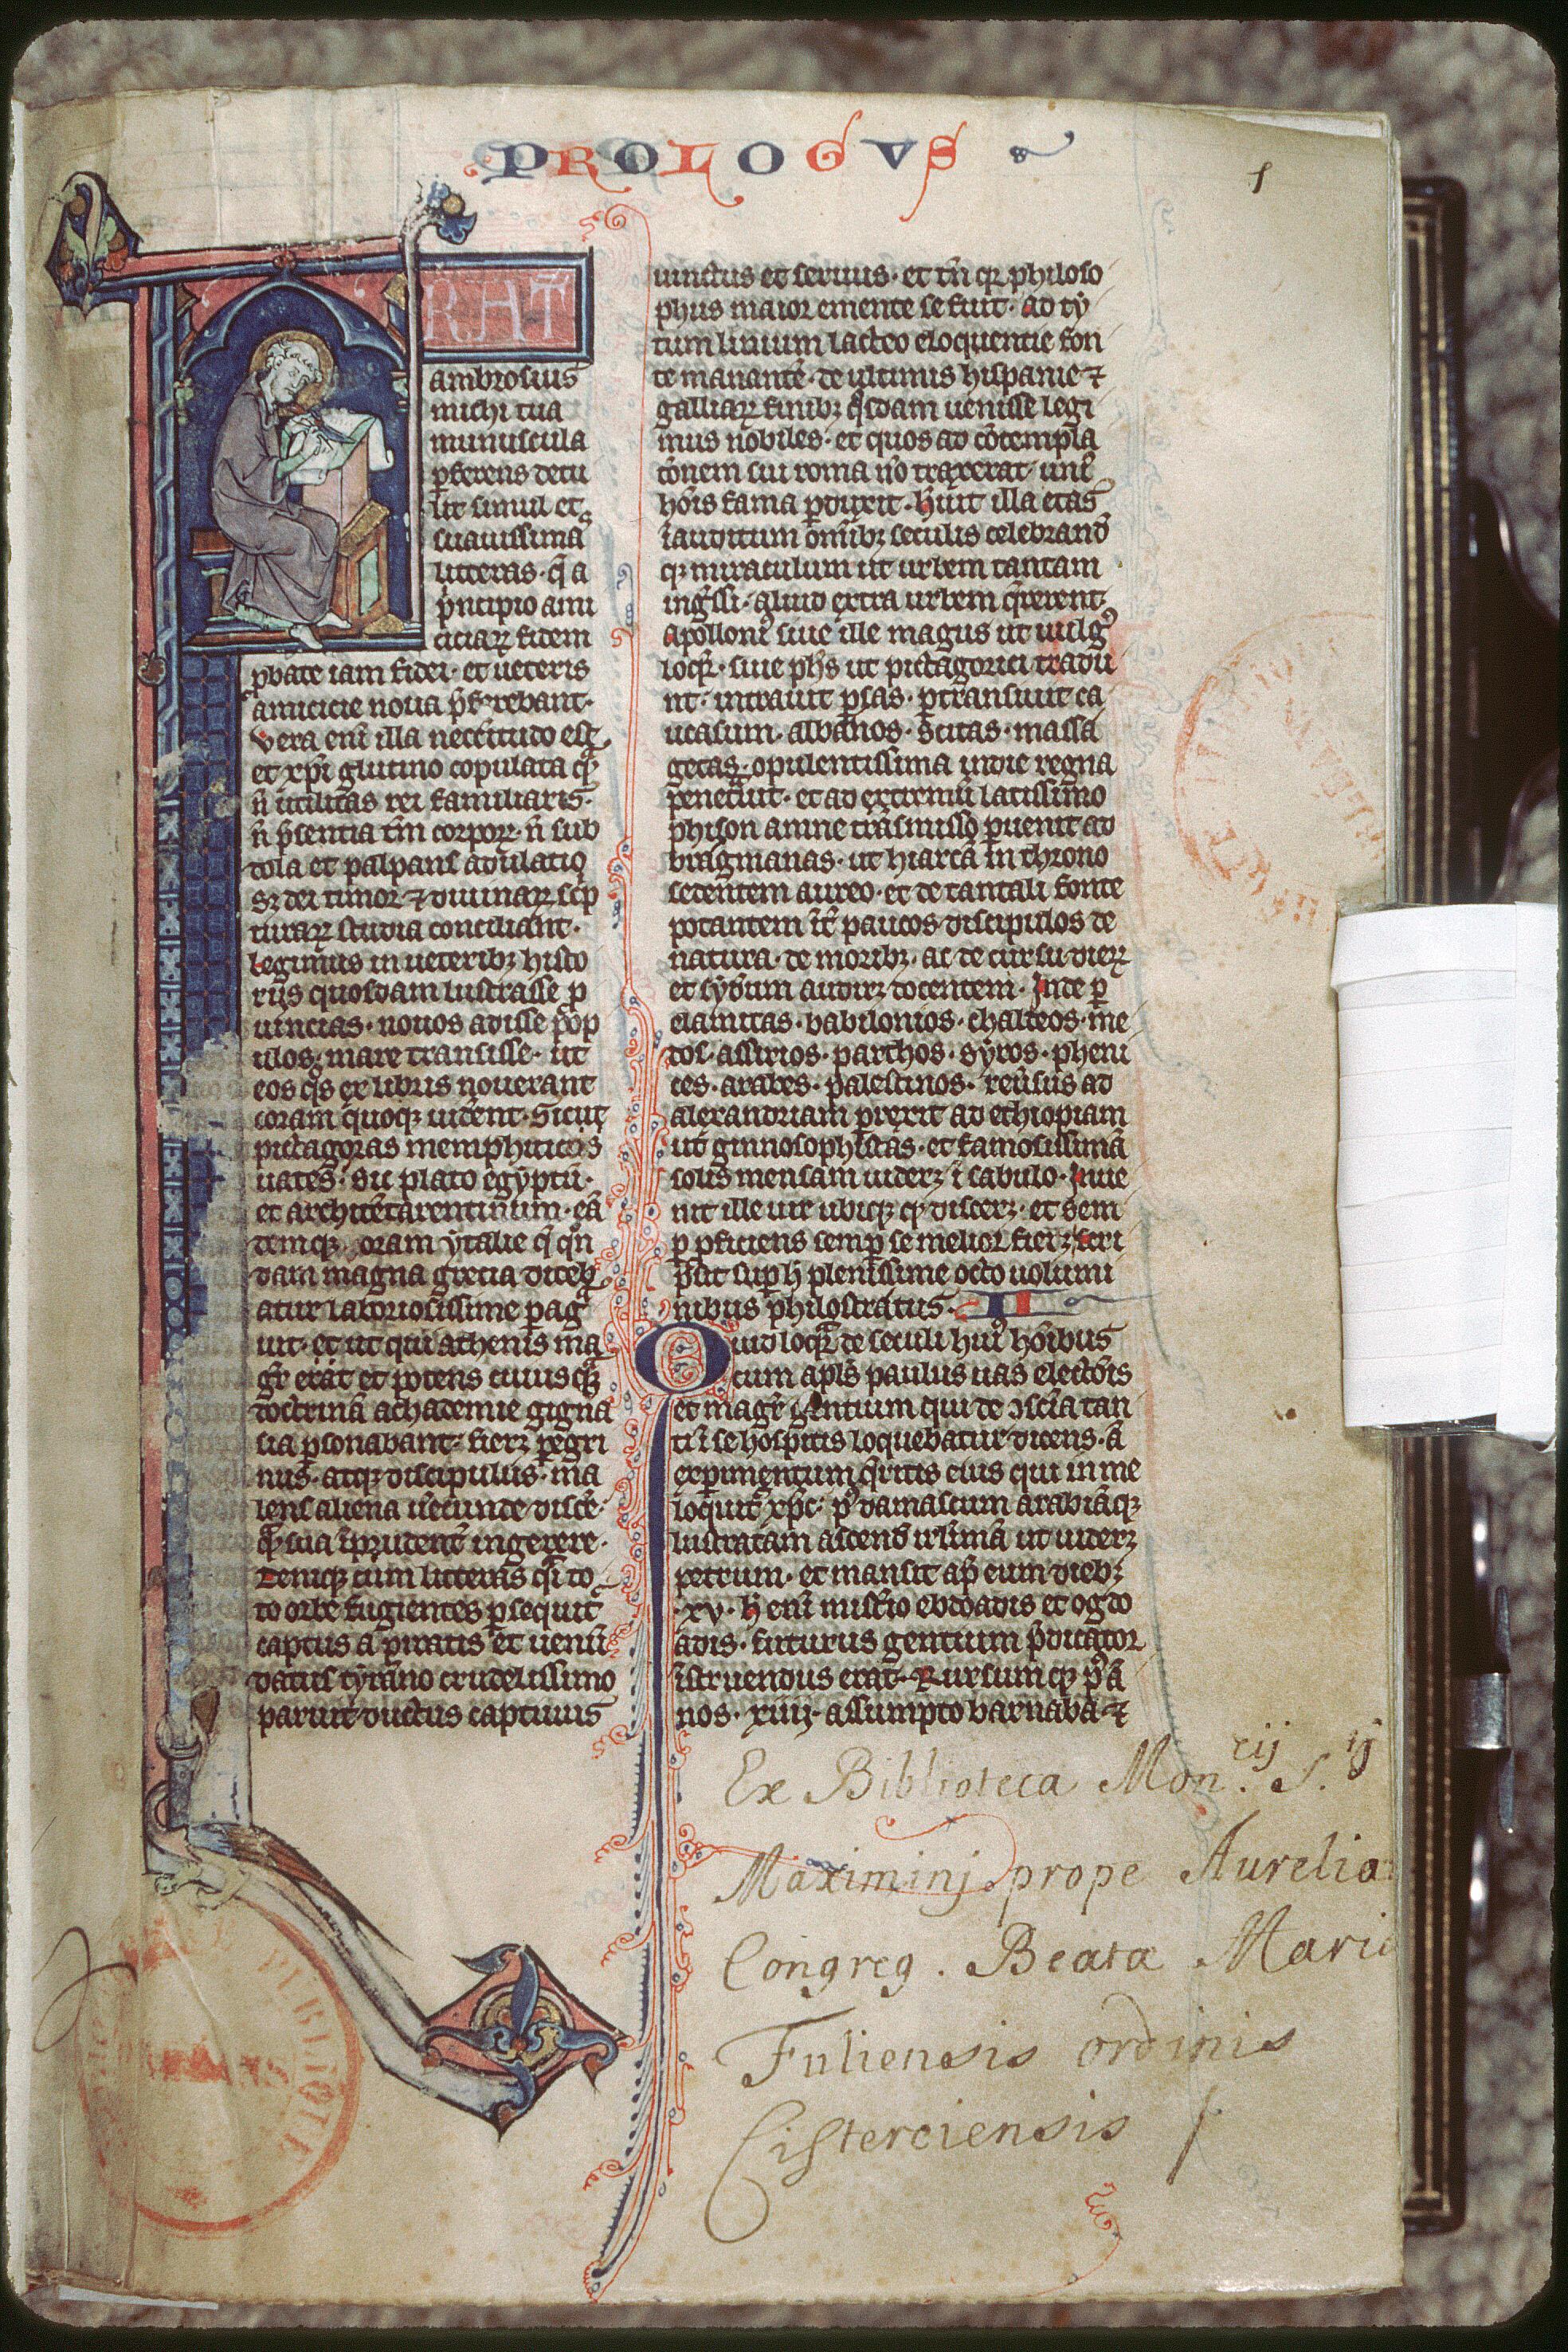 PROLOGVS
1
RAT
ambrosius
michi tua
munuscula
pferens detu
lit simul et
suauissimas
litteras · q̄ a
p̄ncipio ami
citiaꝝ fidem
ꝓbate iam fidei · et ueteris
amicicie noua p̄ferebant ·
Vera eni᷒ illa necc̄itudo est
et xp̄i glutino copulata qͣ
n̄ utilitas rei familiaris ·
n̄ p̄sentia tm̄ corporꝝ · n̄ sub
dola et palpans adulatio
sꝫ dei timor ⁊ diuinaꝝ sc̄p
turaꝝ studia conciliant ·
legimus in ueteribꝫ histo
riis quosdam lustrasse ꝓ
uincias · nouos adisse pop
ulos · mare transisse · ut
eos qͦs ex libris nouerant
coram quoqꝫ uidēent · Sicut
pictagoras memphiticos
uates · sic plato egyptū ·
et architā tarentinum · eā
demqꝫ oram ytalie q̄ qͦn
dam magna grecia diceb
atur laboriosissime pagͣ
uit · et ut qui athenis ma
gr̄ erat et potens cuiusqꝫ
doctrinā achademie gigna
sia ꝑsonabant · fierꝫ pegri
nus · atqꝫ discipulus · ma
lens aliena uerecunde discē ·
qͣ sua īprudent̄ ingerere ·
Deniqꝫ cum litteras qͣi to
to orbe fugientes ꝑsequit̄
captus a piratis et uenū
datus tyrāno crudelissimo
paruit ductus captiuus
uinctus et seruus · et tn̄ qꝛ philoso
phus maior emente se fuit · ad ty
tum liuium lacteo eloquentie fon
te manantē · de ultimis hispanie ⁊
galliaꝝ finibꝫ qͦsdam uenisse legi
mus nobiles · et quos ad cōtempla
cōnem sui roma nō traxerat · unī
hōis fama ꝑduxit · h̄uit illa etas
īauditum om̄ibꝫ seculis celebrand̄
qꝫ miraculum ut urbem tantam
inḡssi · aliud extra urbem q̄rerent ·
Apolloni᷒ siue ille magus ut uulg᷒
loqͥꝛ · siue ph̄s ut pictagorici tradū
nt · intrauit ꝑsas · ꝑtransiuit ca
ucasum · albanos · scitas · massa
getas · opulentissima indie regna
penetͣuit · et ad extremū latissimo
phison amne trāsmisso ꝑuenit ad
bragmanas · ut hiarcā in throno
sedentem aureo · et de tantali fonte
potantem īt̄ paucos discipulos de
natura · de moribꝫ · ac de cursu dieꝝ
et syderum audirꝫ docentem · Inde ꝑ
elamitas · babilonios · chaldeos · me
dos · assirios · parthos · syros · pheni
ces · arabes · palestinos · reūsus ad
alexandriam prexit ad ethiopiam
ut ginnosophistas · et famosissimā
solis mensam uiderꝫ ī sabulo · Inue
nit ille uir ubiqꝫ qͦ discerꝫ · et sem
ꝑ ꝓficiens semꝑ se melior fierꝫ · scri
psit suꝑ h̄ plenissime octo uolumi
nibus philostratus · II
Quid loqͣr de seculi hui᷒ hōibus
cum apl̄s paulus uas electōis
et magr̄ gentium qui de ɔsciā tan
ti ī se hospitis loquebatur dicens · ā
experimentum q̄ritis eius qui in me
loquit̄ xp̄c · p᷒ damascum arabiāqꝫ
lustratam ascend̄ irl̄imā ut uiderꝫ
petrum · et mansit ap̄ eum diebꝫ
· xv · h̄ eni᷒ misterio ebdoadis et ogdo
adis · futurus gentium p̄dicator
īstruendus erat · Rursumqꝫ p᷒ ā
nos · xiiij · assumpto barnaba ⁊
Ex Biblioteca Mon.cij S.ij
Maximinj prope Aurelia
Congreg. Beata Maria
Fuliensis ordinis
Cisterciensis